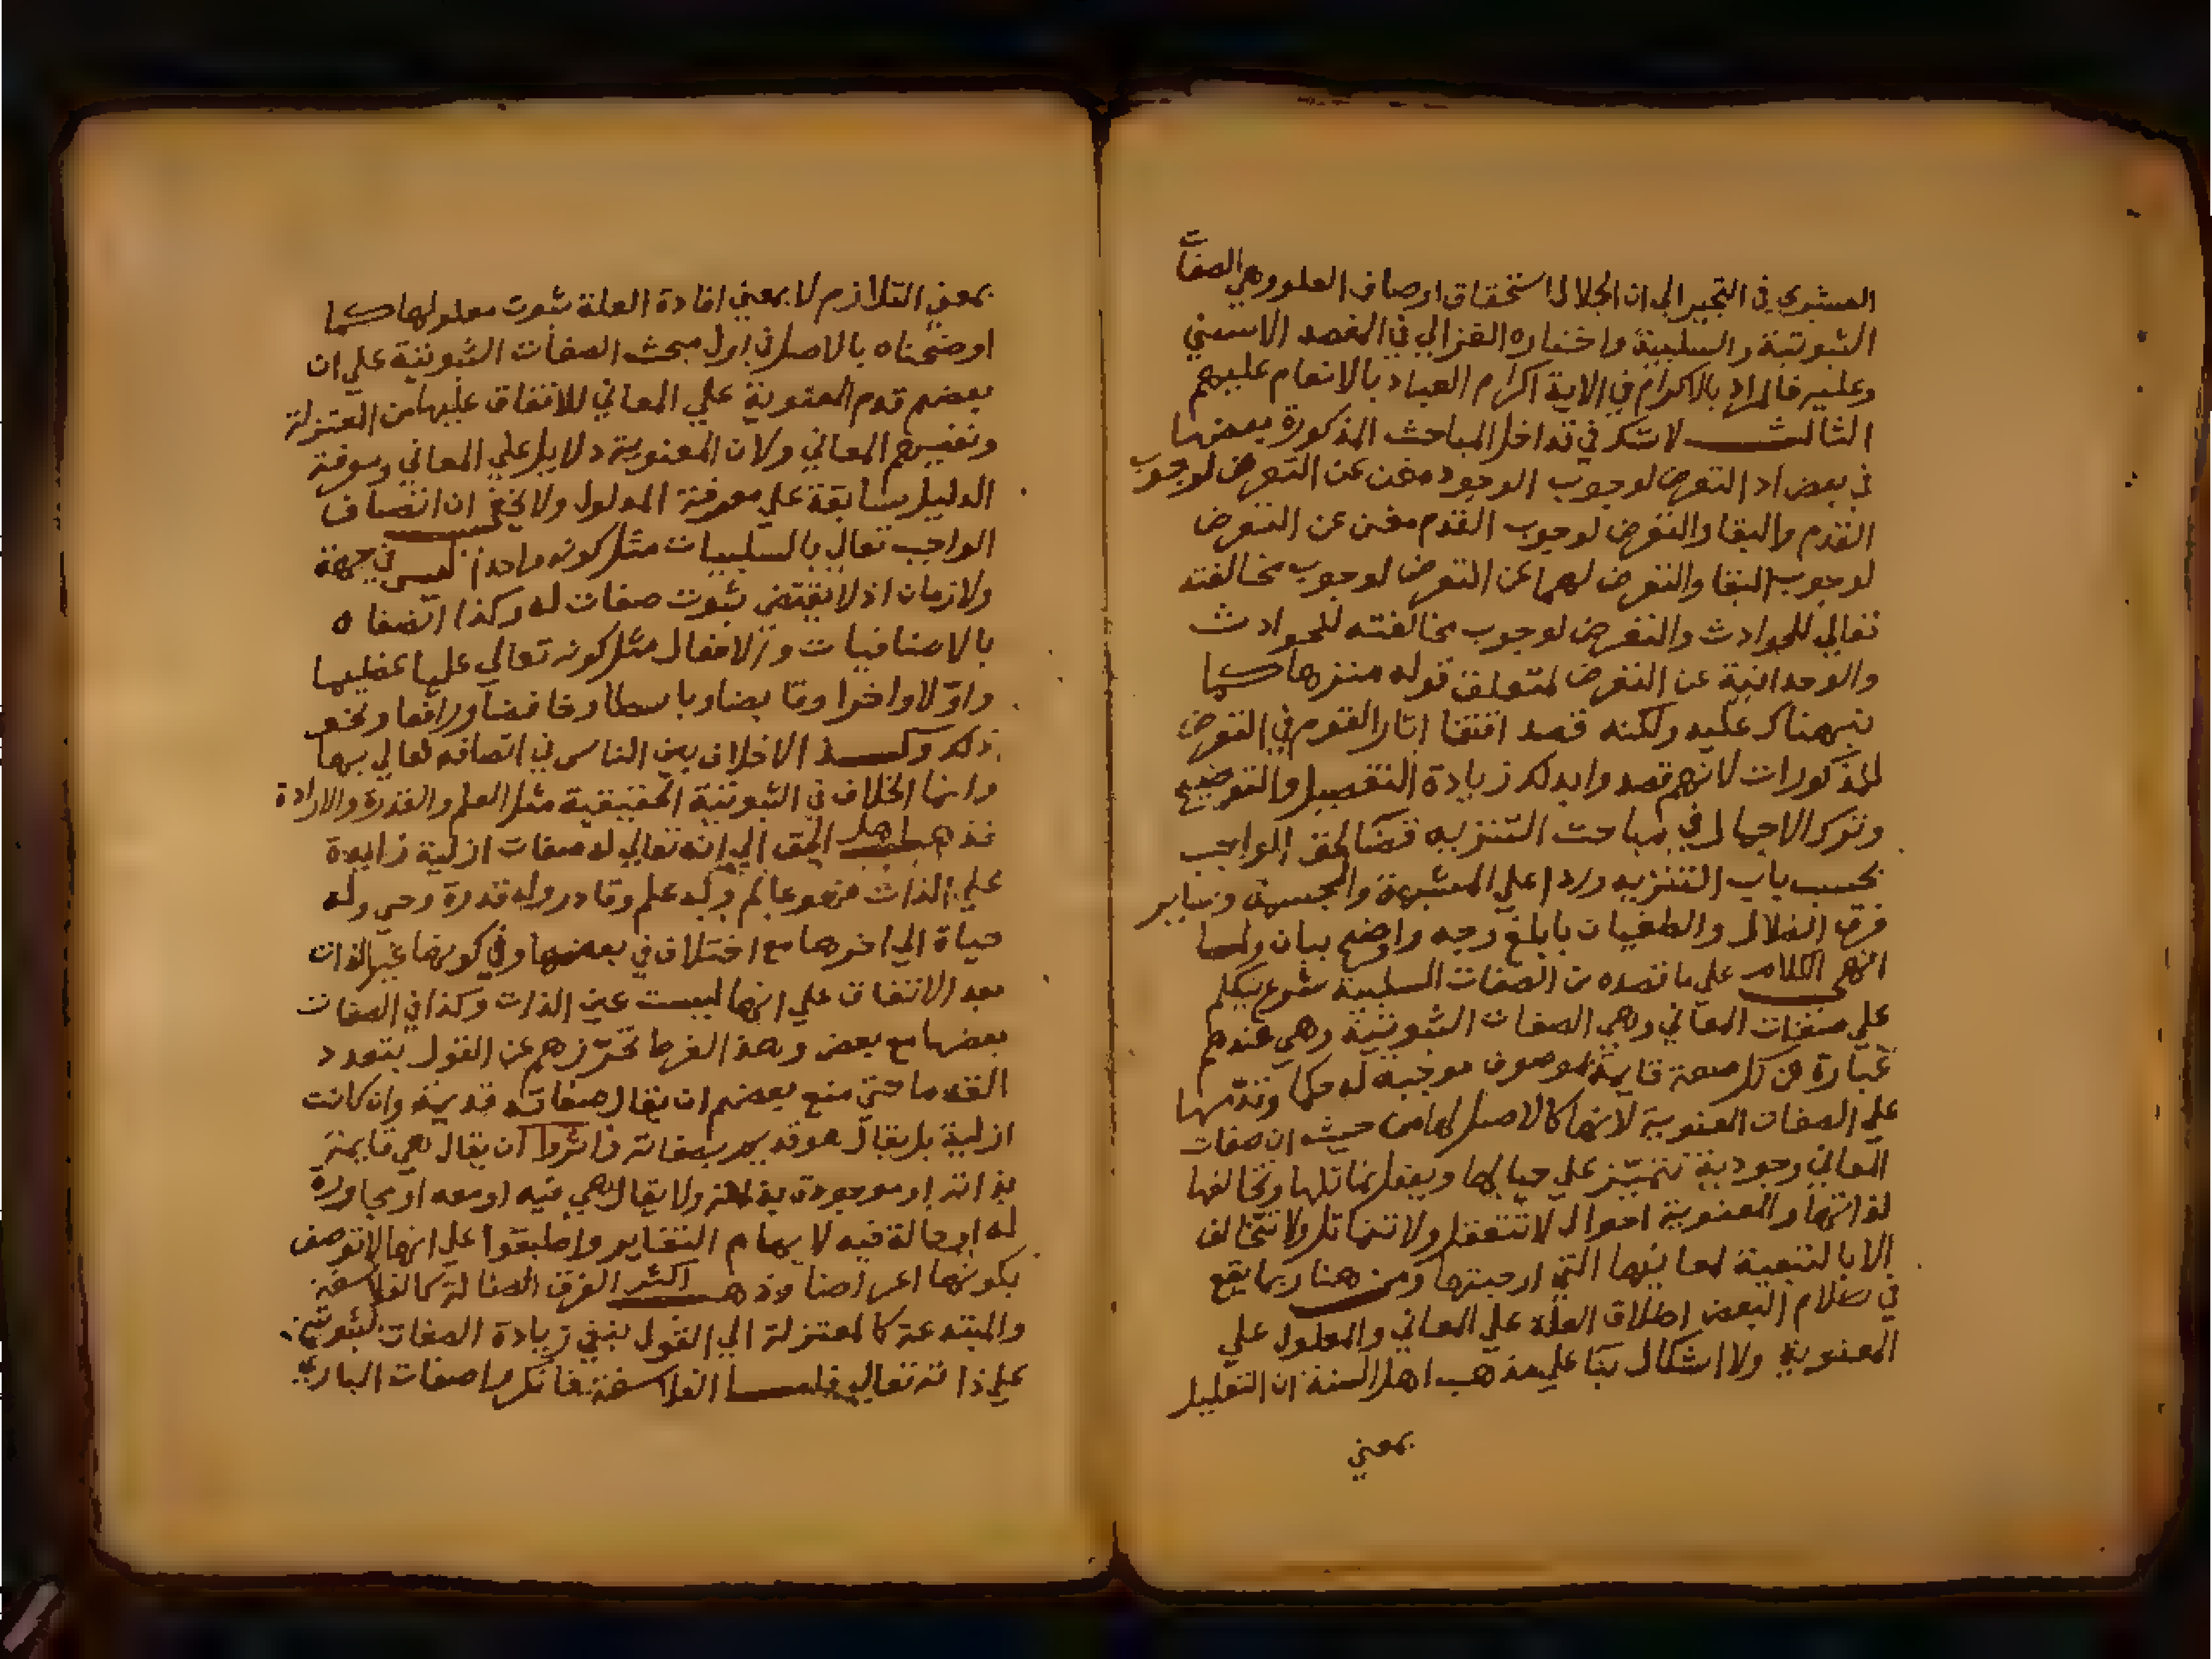 القشيري في التحبير الى ان الجلال استحقاق اوصاف العلو وهي الصفات
الثبوتية والسلبية واختاره الغزالي في المقصد الاسني
وعليه فالمراد بالاكرام في الاية اكرام العباد بالانعام عليهم
الثالث لا شك في تداخل المباحث المذكورة بعضها
في بعض اذ التعرض لوجوب الوجود مغن عن التعرض لوجوب
القدم والبقا والتعرض لوجوب القدم مغن عن التعرض
لوجوب البقا والتعرض لهما عن التعرض لوجوب مخالفته
تعالي للحوادث والتعرض لوجوب مخالفته للحوادث
والوحدانية عن التعرض لمتعلق قوله منزها كما
نبه هناك عليه ولكنه قصد اقتفا اثار القوم في التعرض
للمذكورات لانهم قصدوا بذلك زيادة التفصيل والتوضيح
وترك الاجمال في مباحث التنزيه قضا لحق الواجب
بحسب باب التنزيه وردا علي المشبهة والمجسمة وساير
فرق الضلال والطغيان بابلغ وجه واوضح بيان ولما
انهى الكلام علي ما قصده من الصفات السلبية شرع يتكلم
علي صفات المعاني وهي الصفات الثبوتية وهي عندهم
عبارة عن كل صفة قايمة بموصوف موجبة له حكما وقدمها
علي الصفات المعنوية لانها كالاصل لها من حيث ان صفات
المعاني وجودية تتميز علي حيالها ويعقل تماثلها وتخالفها
لذاتها والمعنوية احوال لا تتعقل ولا تتماثل ولا تتخالف
الا بالتبعية لمعانيها التي اوجبتها ومن هنا ربما يقع
في كلام البعض اطلاق العلة علي المعاني والمعلول علي
المعنوية ولا اشكال بنا علي مذهب اهل السنة ان التعليل
بمعني
بمعني التلازم لا بمعني افادة العلة ثبوت معلولها كما
اوضحناه بالاصل في اول مبحث الصفات الثبوتية علي ان
بعضهم قدم المعنوية علي المعاني للاتفاق عليها من المعتزلة
ونفيهم المعاني ولان المعنوية دلايل علي المعاني ومعرفة
الدليل سابقة علي معرفة المدلول ولا يخفى ان اتصاف
الواجب تعالي بالسلبيات مثل كونه واحدا ليس في جهة
ولا زمان اذ لا يقتضي ثبوت صفات له وكذا اتصفاه
بالاضافيات والافعال مثل كونه تعالي عليا عظيما
واولا واخرا وقابضا وباسطا وخافضا ورافعا ونحو
ذلك وكذا الاخلاف بين الناس في اتصافه تعالي بها
وانما الخلاف في الثبوتية الحقيقية مثل العلم والقدرة والارادة
فذهب اهل الحق الي انه تعالي له صفات ازلية زايدة
علي الذات فهو عالم وله علم وقادر وله قدرة وحي وله
حياة الي اخرها مع اختلاف في بعضها وفي كونها غير الذات
بعد الاتفاق علي انها ليست عين الذات وكذا في الصفات
بعضها مع بعض وهذا لفرط تحرزهم عن القول بتعدد
القدما حتي منع بعضهم ان يقال صفاته قديمة وان كانت
ازلية بل يقال هو قديم بصفاته واثروا ان يقال هي قايمة
بذاته او موجودة بذاته ولا يقال هي فيه او معه او مجاورة
له او حالة فيه لايهام التغاير واطبقوا علي انها لا توصف
بكونها اعراضا وذهب اكثر الفرق الضالة كالفلاسفة
والمبتدعة كالمعتزلة الي القول بنفي زيادة الصفات الثبوتية
علي ذاته تعالي فاما الفلاسفة فانكروا صفات الباري